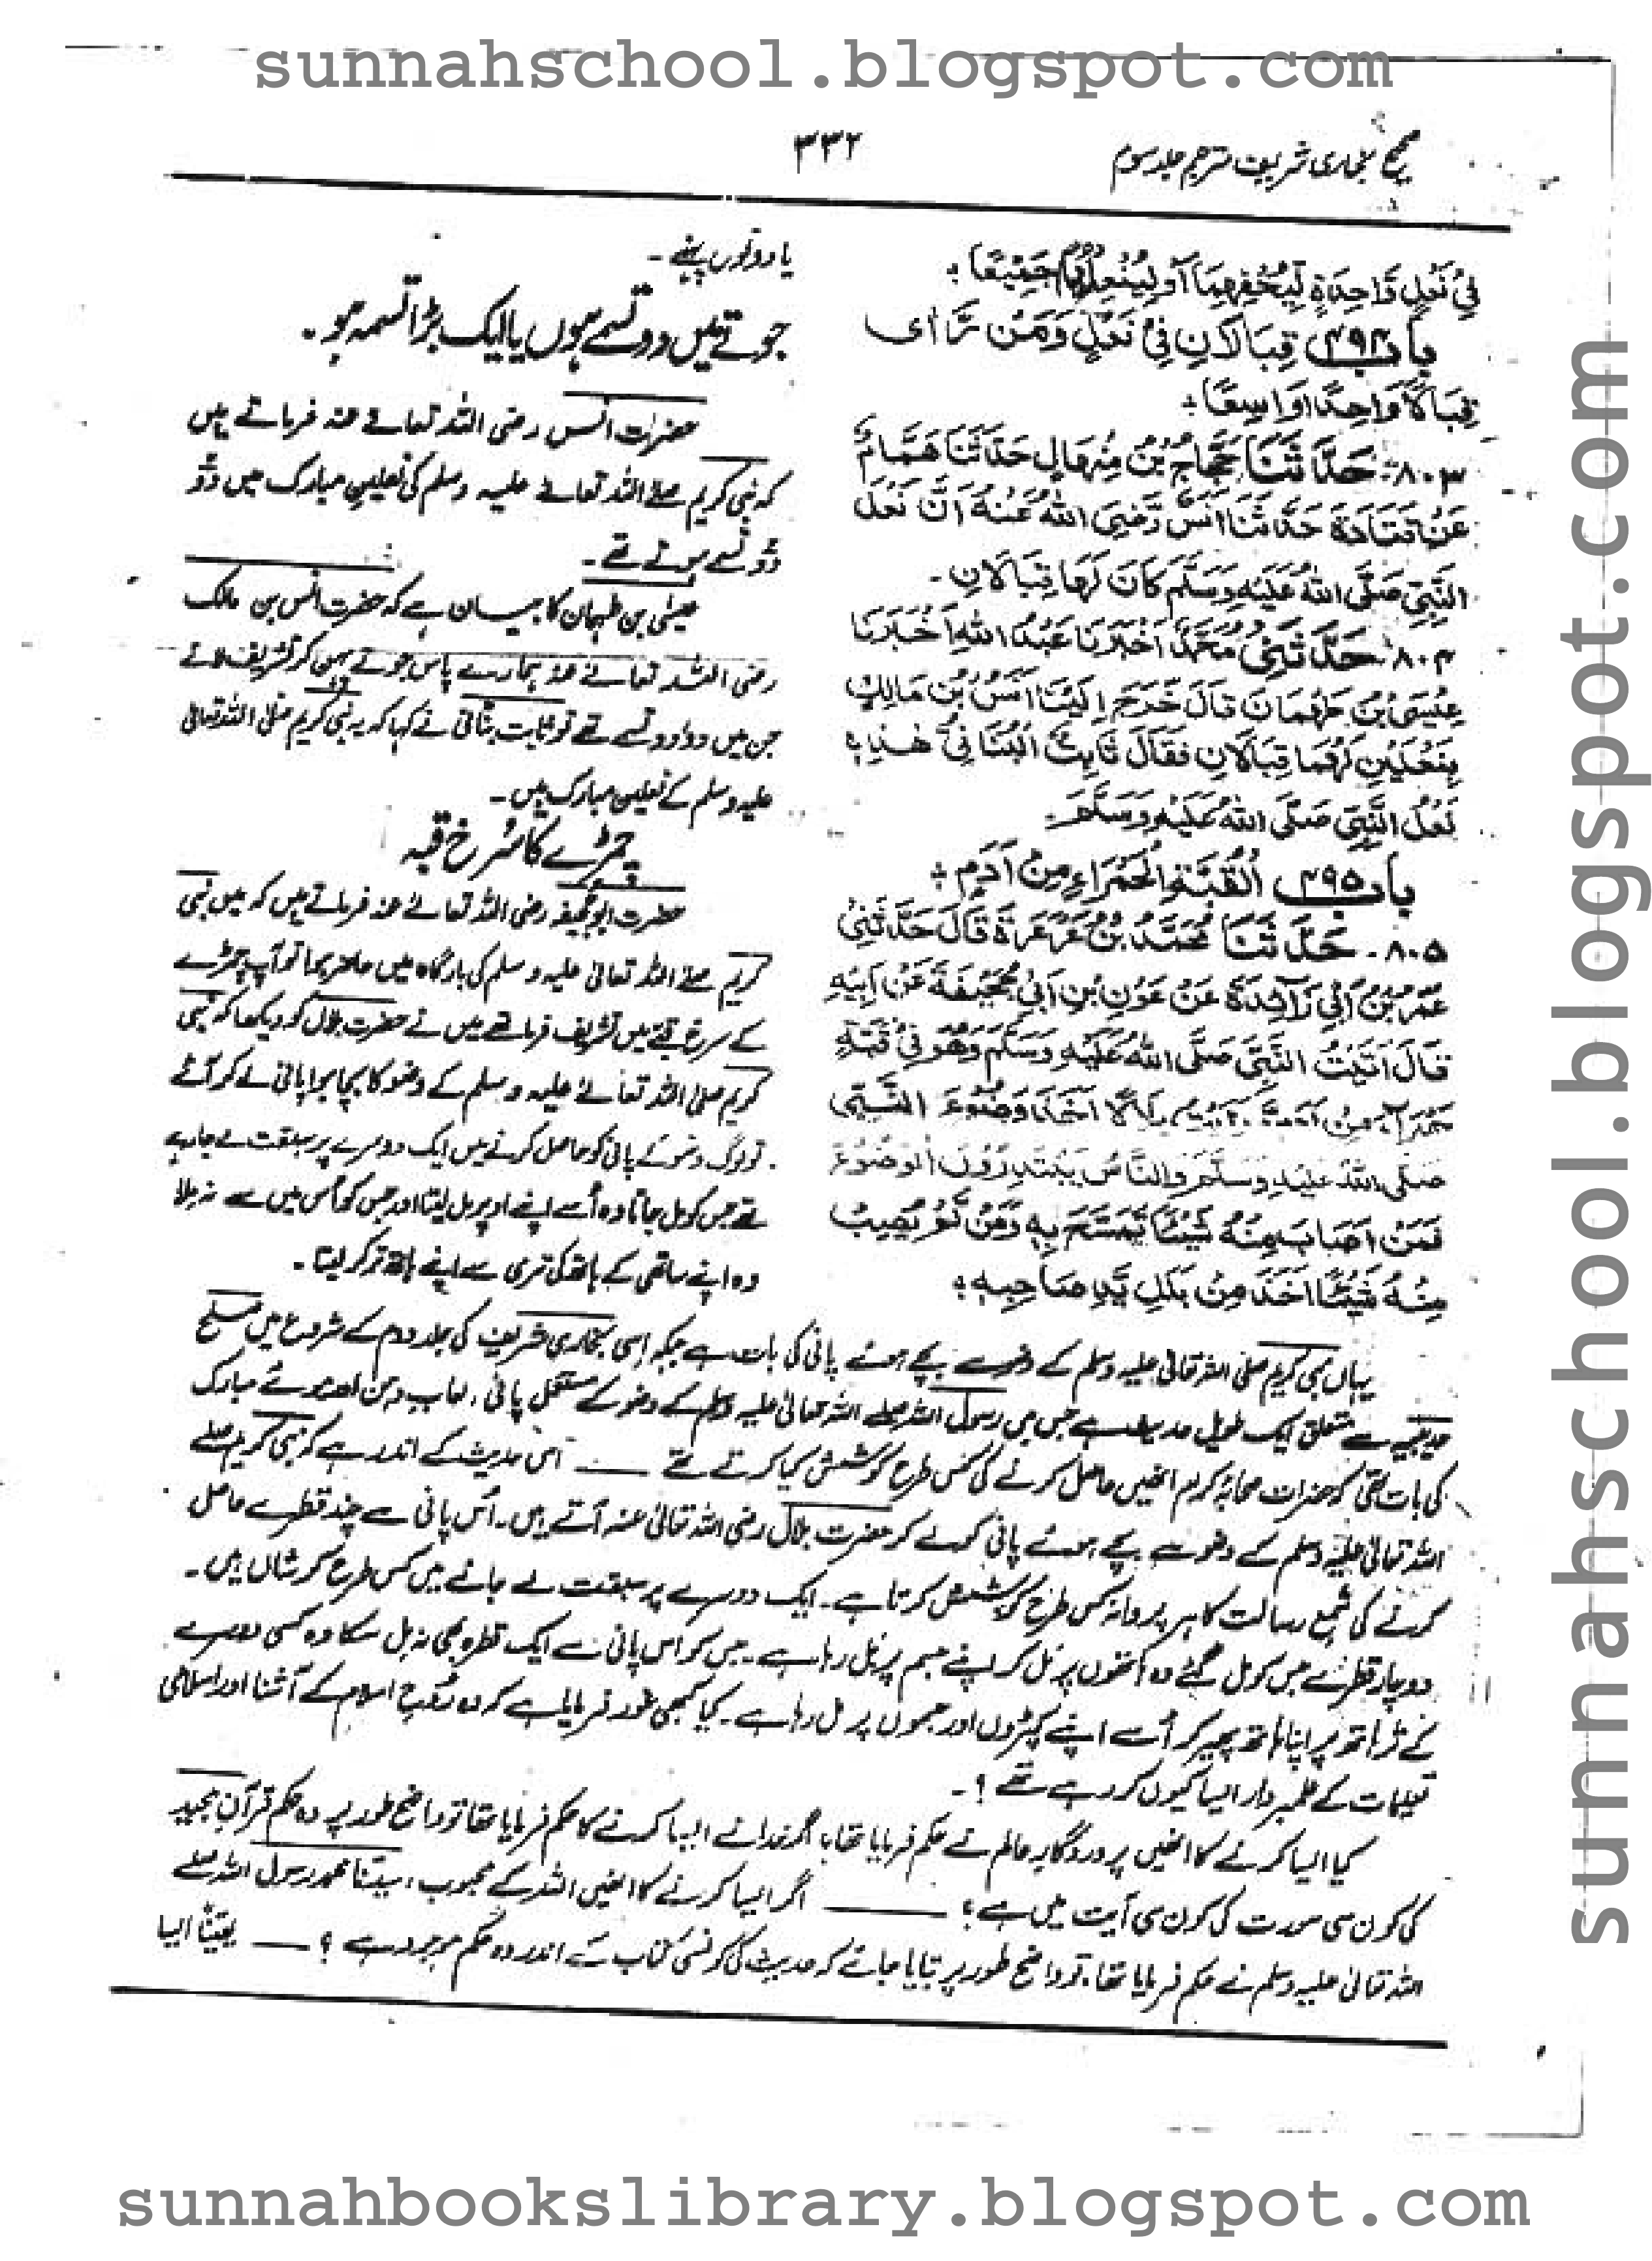 sunnahschool.blogspot.com
صحیح بخاری شریف مترجم جلد سوم
۳۳۲
فِيْ نَعْلٍ وَّاحِدَةٍ لِّيُحْفِهِمَا اَوْ لِيُنْعِلْهُمَا جَمِيْعًا
باب ۴۹۴ قِبَالَانِ فِيْ نَعْلٍ وَمَنْ رَّاٰى
قِبَالًا وَّاحِدًا وَاسِعًا
۸۰۳۔ حَدَّثَنَا حَجَّاجُ بْنُ مِنْهَالٍ حَدَّثَنَا هَمَّامٌ
عَنْ قَتَادَةَ حَدَّثَنَا اَنَسٌ رَّضِيَ اللهُ عَنْهُ اَنَّ نَعْلَ
النَّبِيِّ صَلَّى اللهُ عَلَيْهِ وَسَلَّمَ كَانَ لَهَا قِبَالَانِ۔
۸۰۴۔ حَدَّثَنِيْ مُحَمَّدٌ اَخْبَرَنَا عَبْدُ اللهِ اَخْبَرَنَا
عِيْسَى بْنُ طَهْمَانَ قَالَ خَرَجَ اِلَيْنَا اَنَسُ بْنُ مَالِكٍ
بِنَعْلَيْنِ لَهُمَا قِبَالَانِ فَقَالَ ثَابِتٌ الْبُنَانِيُّ هٰذِهٖ
نَعْلُ النَّبِيِّ صَلَّى اللهُ عَلَيْهِ وَسَلَّمَ۔
باب ۴۹۵ اَلْقُبَّةِ الْحَمْرَاءِ مِنْ اَدَمٍ
۸۰۵۔ حَدَّثَنَا مُحَمَّدُ بْنُ عَرْعَرَةَ قَالَ حَدَّثَنِيْ
عُمَرُ بْنُ اَبِيْ زَائِدَةَ عَنْ عَوْنِ بْنِ اَبِيْ جُحَيْفَةَ عَنْ اَبِيْهِ
قَالَ اَتَيْتُ النَّبِيَّ صَلَّى اللهُ عَلَيْهِ وَسَلَّمَ وَهُوَ فِيْ قُبَّةٍ
حَمْرَآءَ مِنْ اَدَمٍ وَّرَاَيْتُ بِلَالًا اَخَذَ وَضُوْءَ النَّبِيِّ
صَلَّى اللهُ عَلَيْهِ وَسَلَّمَ وَالنَّاسُ يَبْتَدِرُوْنَ الْوَضُوْءَ
فَمَنْ اَصَابَ مِنْهُ شَيْئًا تَمَسَّحَ بِهٖ وَمَنْ لَّمْ يُصِبْ
مِنْهُ شَيْئًا اَخَذَ مِنْ بَلَلِ يَدِ صَاحِبِهٖ
یا دونوں پہنے۔
جوتے میں دو تسمے ہوں یا ایک بڑا تسمہ ہو۔
حضرت انس رضی اللہ تعالےٰ عنہ فرماتے ہیں
کہ نبی کریم صلے اللہ تعالےٰ علیہ وسلم کی نعلین مبارک میں دو
دو تسمے ہوتے تھے۔
عیسٰی بن طہمان کا بیان ہے کہ حضرت انس بن مالک
رضی اللہ تعالےٰ عنہ ہمارے پاس جوتے پہن کر تشریف لائے
جن میں دو دو تسمے تھے تو ثابت بنانی نے کہا کہ یہ نبی کریم صلی اللہ تعالیٰ
علیہ وسلم کے نعلین مبارک ہیں۔
چمڑے کا سُرخ قبہ
حضرت ابوجحیفہ رضی اللہ تعالےٰ عنہ فرماتے ہیں کہ میں نبی
کریم صلے اللہ تعالیٰ علیہ وسلم کی بارگاہ میں حاضر ہوا تو آپ چمڑے
کے سرخ قبے میں تشریف فرما تھے میں نے حضرت بلال کو دیکھا کہ نبی
کریم صلی اللہ تعالےٰ علیہ وسلم کے وضو کا بچا ہوا پانی لے کر آئے
تو لوگ وضو کے پانی کو حاصل کرنے میں ایک دوسرے پر سبقت لے جا رہے
تھے جس کو مل جاتا وہ اُسے اپنے اوپر مل لیتا اور جس کو اُس میں سے نہ ملا
وہ اپنے ساتھی کے ہاتھ کی تری سے اپنے ہاتھ تر کر لیتا۔
یہاں نبی کریم صلی اللہ تعالیٰ علیہ وسلم کے وضو سے بچے ہوئے پانی کی بات ہے جبکہ اِسی بخاری شریف کی جلد دوم کے شروع میں صلح
حدیبیہ سے متعلق ایک طویل حدیث ہے جس میں رسول اللہ صلے اللہ تعالیٰ علیہ وسلم کے وضو کے مستعمل پانی، لعابِ دہن اور موئے مبارک
کی بات تھی کہ حضرات صحابۂ کرام انھیں حاصل کرنے کی کس طرح کوشش کیا کرتے تھے ــــ اس حدیث کے اندر ہے کہ نبی کریم صلے
اللہ تعالیٰ علیہ وسلم کے وضو سے بچے ہوئے پانی کو لے کر حضرت بلال رضی اللہ تعالیٰ عنہ آتے ہیں۔ اُس پانی سے چند قطرے حاصل
کرنے کی شمع رسالت کا ہر پروانہ کس طرح کوشش کرتا ہے۔ ایک دوسرے پر سبقت لے جانے میں کس طرح کوشاں ہیں۔
دو چار قطرے جس کو مل گئے وہ ہاتھوں پر مل کر اپنے جسم پر مل رہا ہے۔ جس کو اس پانی سے ایک قطرہ بھی نہ مل سکا وہ کسی دوسرے
کے تر ہاتھ پر اپنا ہاتھ پھیر کر اُسے اپنے کپڑوں اور جسموں پر مل رہا ہے۔ کیا کبھی غور فرمایا ہے کہ وہ روحِ اسلام کے آشنا اور اسلامی
تعلیمات کے علمبردار ایسا کیوں کر رہے تھے؟۔
کیا ایسا کرنے کا انھیں پروردگارِ عالم نے حکم فرمایا تھا؟ اگر خدا نے ایسا کرنے کا حکم فرمایا تھا تو واضح طور پر وہ حکم قرآنِ مجید
کی کون سی سورت کی کون سی آیت میں ہے؟ ــــــ اگر ایسا کرنے کا انھیں اللہ کے محبوب، سیدنا محمد رسول اللہ صلے
اللہ تعالیٰ علیہ وسلم نے حکم فرمایا تھا، تو واضح طور پر بتایا جائے کہ حدیث کی کونسی کتاب کے اندر وہ حکم موجود ہے؟ ــــ یقیناً ایسا
sunnahschool.blogspot.com
sunnahbookslibrary.blogspot.com